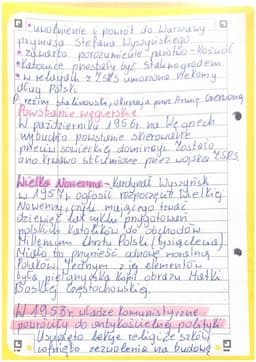 • uwolnienie i powrót do Warszawy
prymasa Stefana Wyszyńskiego
• zawarto porozumienie państwo-kościół
• Katowice przestały być Stalinogrodem
• w relacjach z ZSRS umorzono rzekomy
dług Polski
Powstanie węgierskie
W październiku 1956r. na Węgrzech
wybuchło powstanie skierowane
przeciw sowieckiej dominacji. Zostało
ono krwawo stłumione przez wojska ZSRS
Wielka Nowenna - Kardynał Wyszyński
w 1957r. ogłosił rozpoczęcie Wielkiej
Nowenny, czyli mającego trwać
dziewięć lat cyklu przygotowań
polskich katolików do obchodów
Millenium Chrztu Polski (tysiąclecia).
Miało to przynieść odnowę moralną
Polaków. Jednym z jej elementów
była pielgrzymka kopii obrazu Matki
Boskiej Częstochowskiej.
W 1958r. władze komunistyczne
powróciły do antykościelnej polityki
Usunięto lekcje religii ze szkół,
cofnięto zezwolenia na budowę